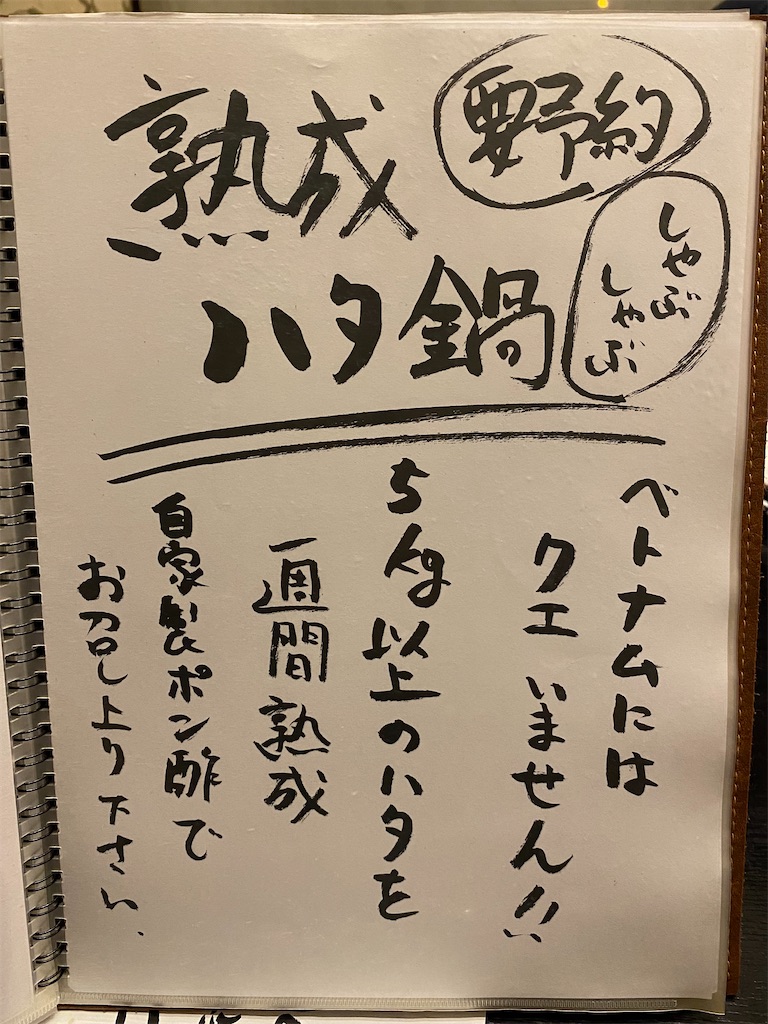 熟成
要予約
ハタ鍋
しゃぶ
しゃぶ
ベトナムには
クエいません!!
5kg以上のハタを
一週間熟成
自家製ポン酢で
お召し上り下さい、